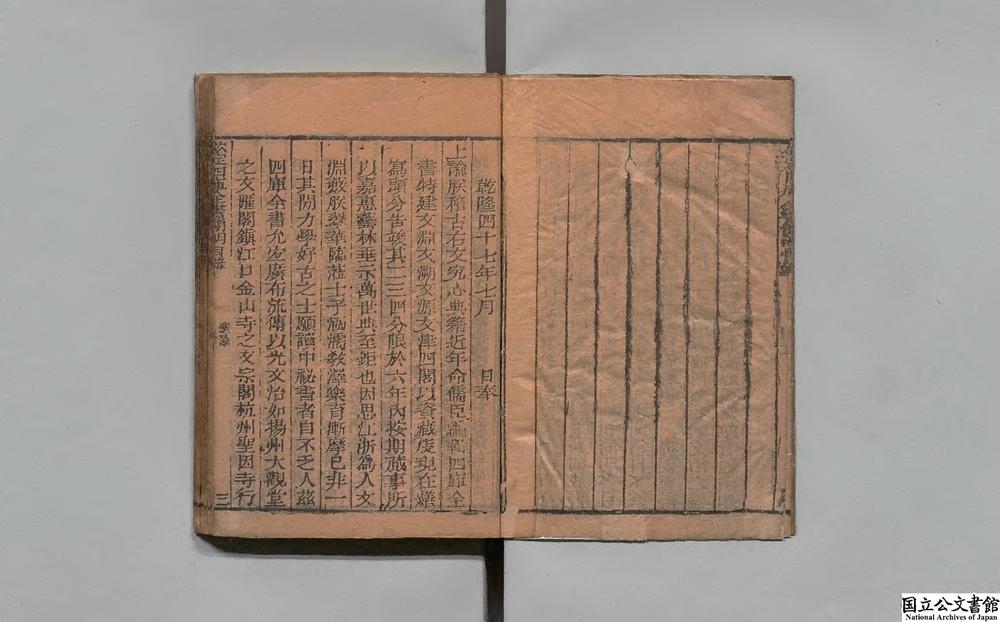 乾隆四十七年七月　日奉
上諭朕稽古右文究心典籍近年命儒臣編輯四庫全
書特建文淵文溯文源文津四閣以資藏庋現在繕
寫頭分告竣其二三四分限於六年內按期蕆事所
以嘉惠藝林垂示萬世典至鉅也因思江浙為人文
淵藪朕翠華臨蒞士子涵濡敎澤樂育漸摩已非一
日其閒力學好古之士願讀中祕書者自不乏人茲
四庫全書允宜廣布流傳以光文治如揚州大觀堂
之文匯閣鎮江口金山寺之文宗閣杭州聖因寺行
三
国立公文書館
National Archives of Japan